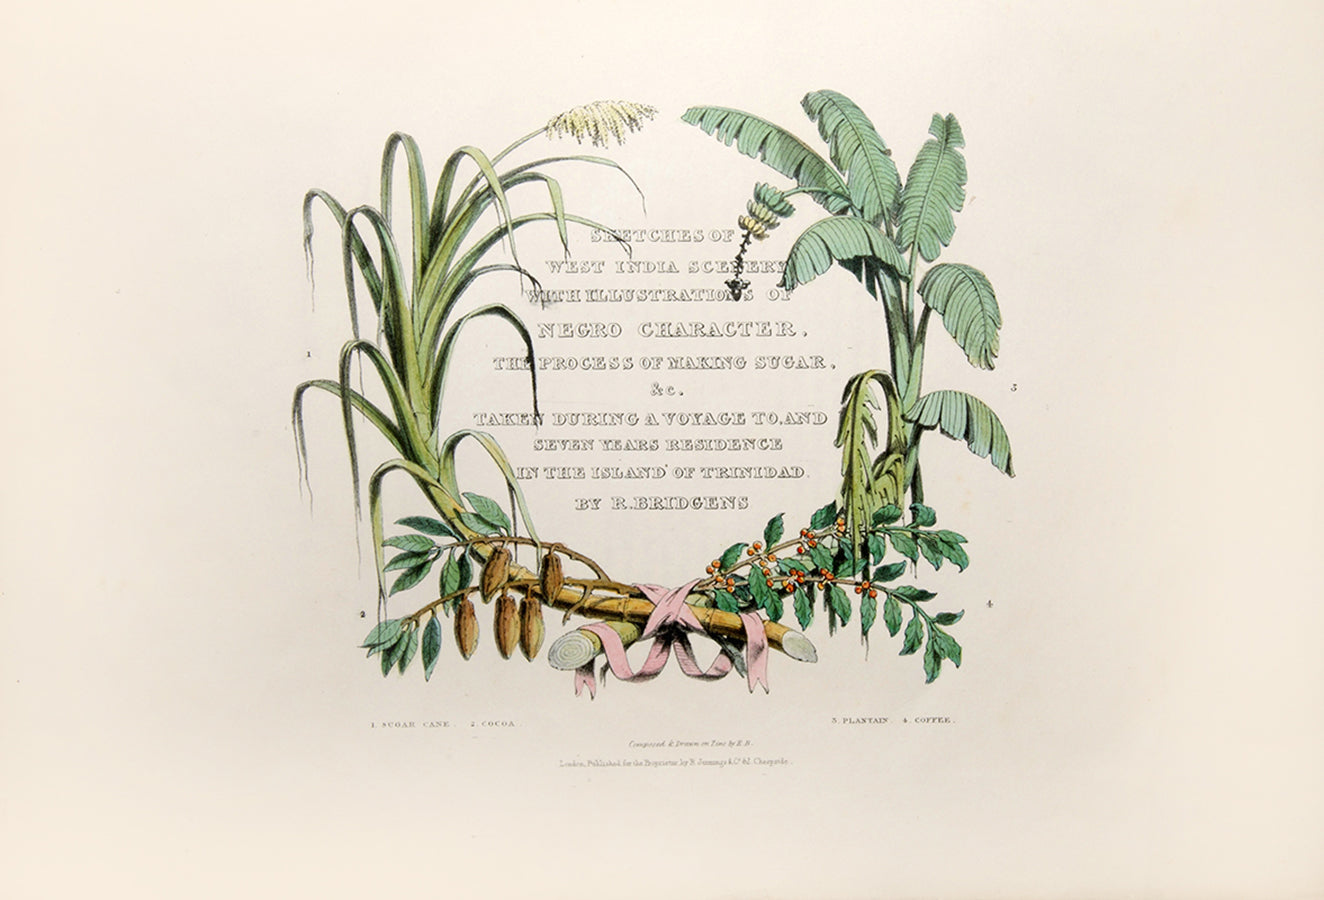 SKETCHES OF
WEST INDIA SCENERY
WITH ILLUSTRATIONS OF
NEGRO CHARACTER,
THE PROCESS OF MAKING SUGAR,
&c.
TAKEN DURING A VOYAGE TO, AND
SEVEN YEARS RESIDENCE
IN THE ISLAND OF TRINIDAD.
BY R. BRIDGENS
1
3
2
4
1. SUGAR CANE. 2. COCOA.
3. PLANTAIN. 4. COFFEE.
Composed & Drawn on Zinc by R. B.
London, Published for the Proprietor, by R. Jennings & Co. 62. Cheapside.